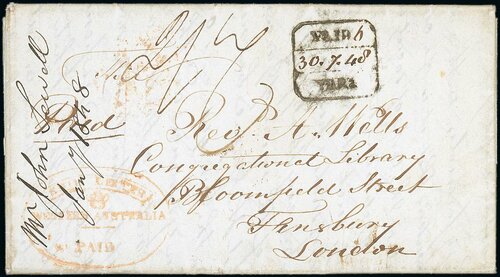 Mr John Sewell
Jany 1848
2/7
Paid
PAID 6
30.7.48
YORK
WESTERN AUSTRALIA
PAID
Revd. A. Wells
Congregational Library
Bloomfield Street
Finsbury
London